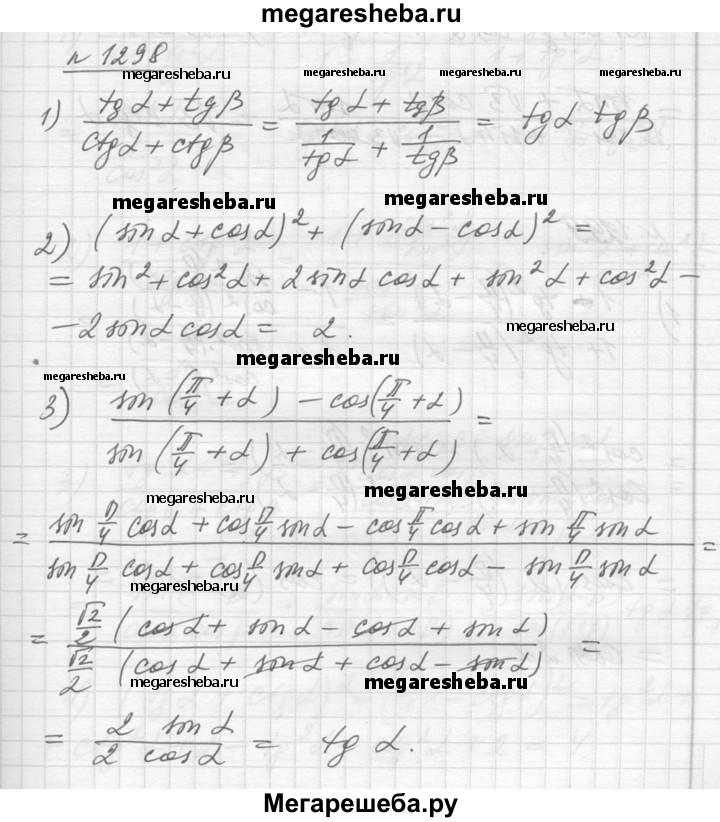 megaresheba.ru
n 1298
megaresheba.ru megaresheba.ru megaresheba.ru
1) (tg α + tg β)/(ctg α + ctg β) = (tg α + tg β)/(1/tg α + 1/tg β) = tg α tg β
megaresheba.ru megaresheba.ru
2) (sin α + cos α)² + (sin α − cos α)² =
= sin² + cos² α + 2 sin α cos α + sin² α + cos² α −
− 2 sin α cos α = 2.
megaresheba.ru
megaresheba.ru
megaresheba.ru
3) (sin(π/4 + α) − cos(π/4 + α))/(sin(π/4 + α) + cos(π/4 + α)) =
megaresheba.ru megaresheba.ru
= (sin π/4 cos α + cos π/4 sin α − cos π/4 cos α + sin π/4 sin α)/(sin π/4 cos α + cos π/4 sin α + cos π/4 cos α − sin π/4 sin α) =
megaresheba.ru megaresheba.ru
= (√2/2 (cos α + sin α − cos α + sin α))/(√2/2 (cos α + sin α + cos α − sin α)) =
megaresheba.ru megaresheba.ru
= (2 sin α)/(2 cos α) = tg α.
Мегарешеба.ру